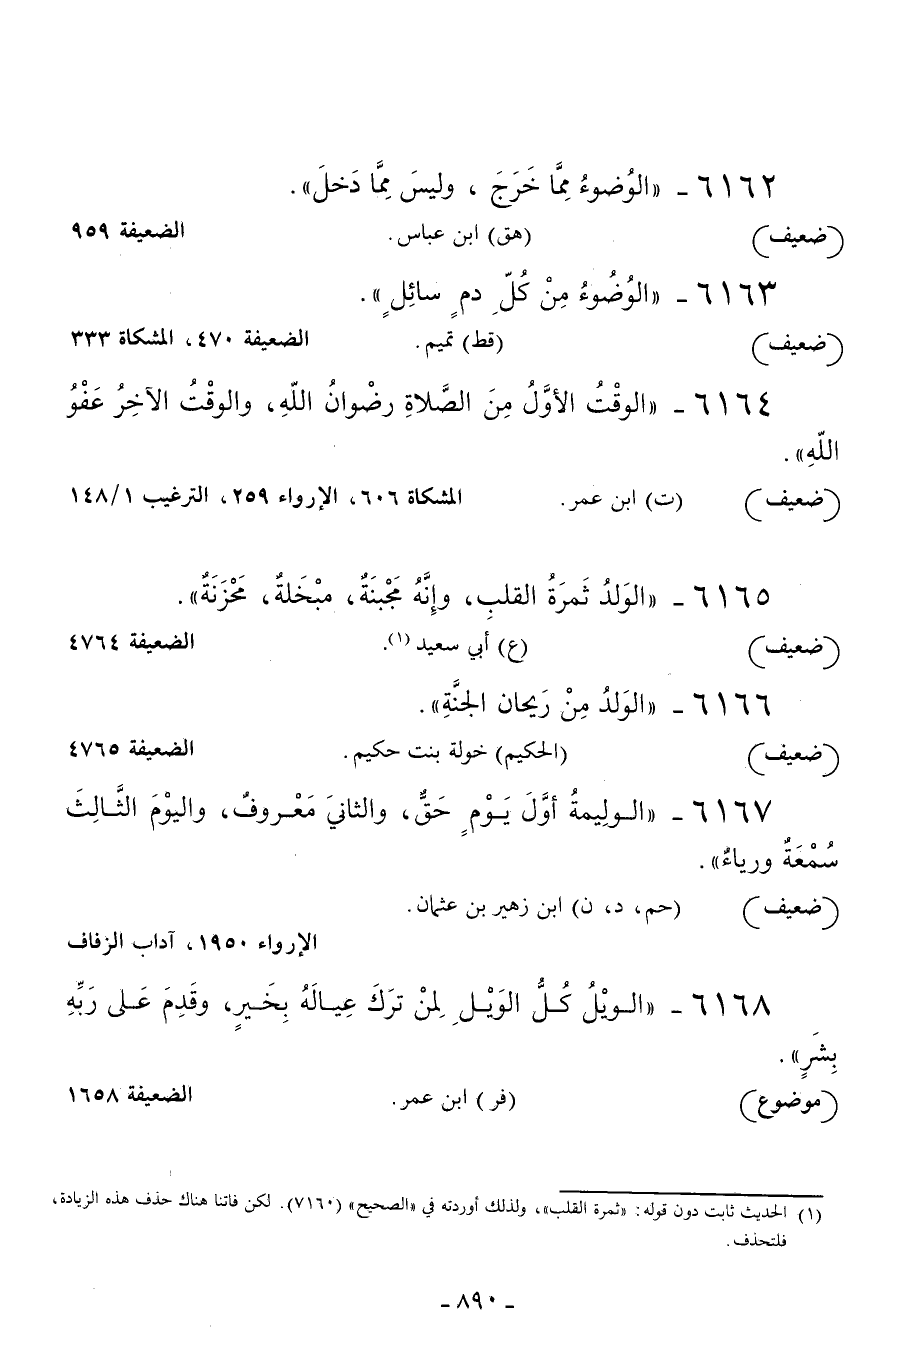 ٦١٦٢ - «الوُضوءُ مِمَّا خَرَجَ ، وليسَ مِمَّا دَخلَ».
(ضعيف) (هق) ابن عباس. الضعيفة ٩٥٩
٦١٦٣ - «الوُضُوءُ مِنْ كُلِّ دمٍ سائِلٍ».
(ضعيف) (قط) تميم. الضعيفة ٤٧٠، المشكاة ٣٣٣
٦١٦٤ - «الوقْتُ الأوَّلُ مِنَ الصَّلاةِ رضْوانُ اللّهِ، والوقْتُ الآخِرُ عَفْوُ
اللّهِ».
(ضعيف) (ت) ابن عمر. المشكاة ٦٠٦، الإرواء ٢٥٩، الترغيب ١٤٨/١
٦١٦٥ - «الوَلدُ ثَمرَةُ القلبِ، وإنَّهُ مَجْبَنَةٌ، مبْخَلةٌ، مَحْزَنَةٌ».
(ضعيف) (ع) أبي سعيد (١). الضعيفة ٤٧٦٤
٦١٦٦ - «الوَلدُ مِنْ رَيحان الجنَّةِ».
(ضعيف) (الحكيم) خولة بنت حكيم. الضعيفة ٤٧٦٥
٦١٦٧ - «الـولِيمةُ أوَّلَ يَـوْمٍ حَقٌّ، والثانيَ مَعْـروفٌ، واليوْمَ الثَّـالِثَ
سُمْعَةٌ ورياءٌ».
(ضعيف) (حم، د، ن) ابن زهير بن عثمان.
الإرواء ١٩٥٠، آداب الزفاف
٦١٦٨ - «الـويْلُ كُـلُّ الوَيْـلِ لِمنْ تركَ عِيـالَهُ بِخَـيرٍ، وقَدِمَ عَـلى رَبِّهِ
بِشَرٍ».
(موضوع) (فر) ابن عمر. الضعيفة ١٦٥٨
(١) الحديث ثابت دون قوله: «ثمرة القلب»، ولذلك أوردته في «الصحيح» (٧١٦٠). لكن فاتنا هناك حذف هذه الزيادة،
فلتحذف.
- ٨٩٠ -